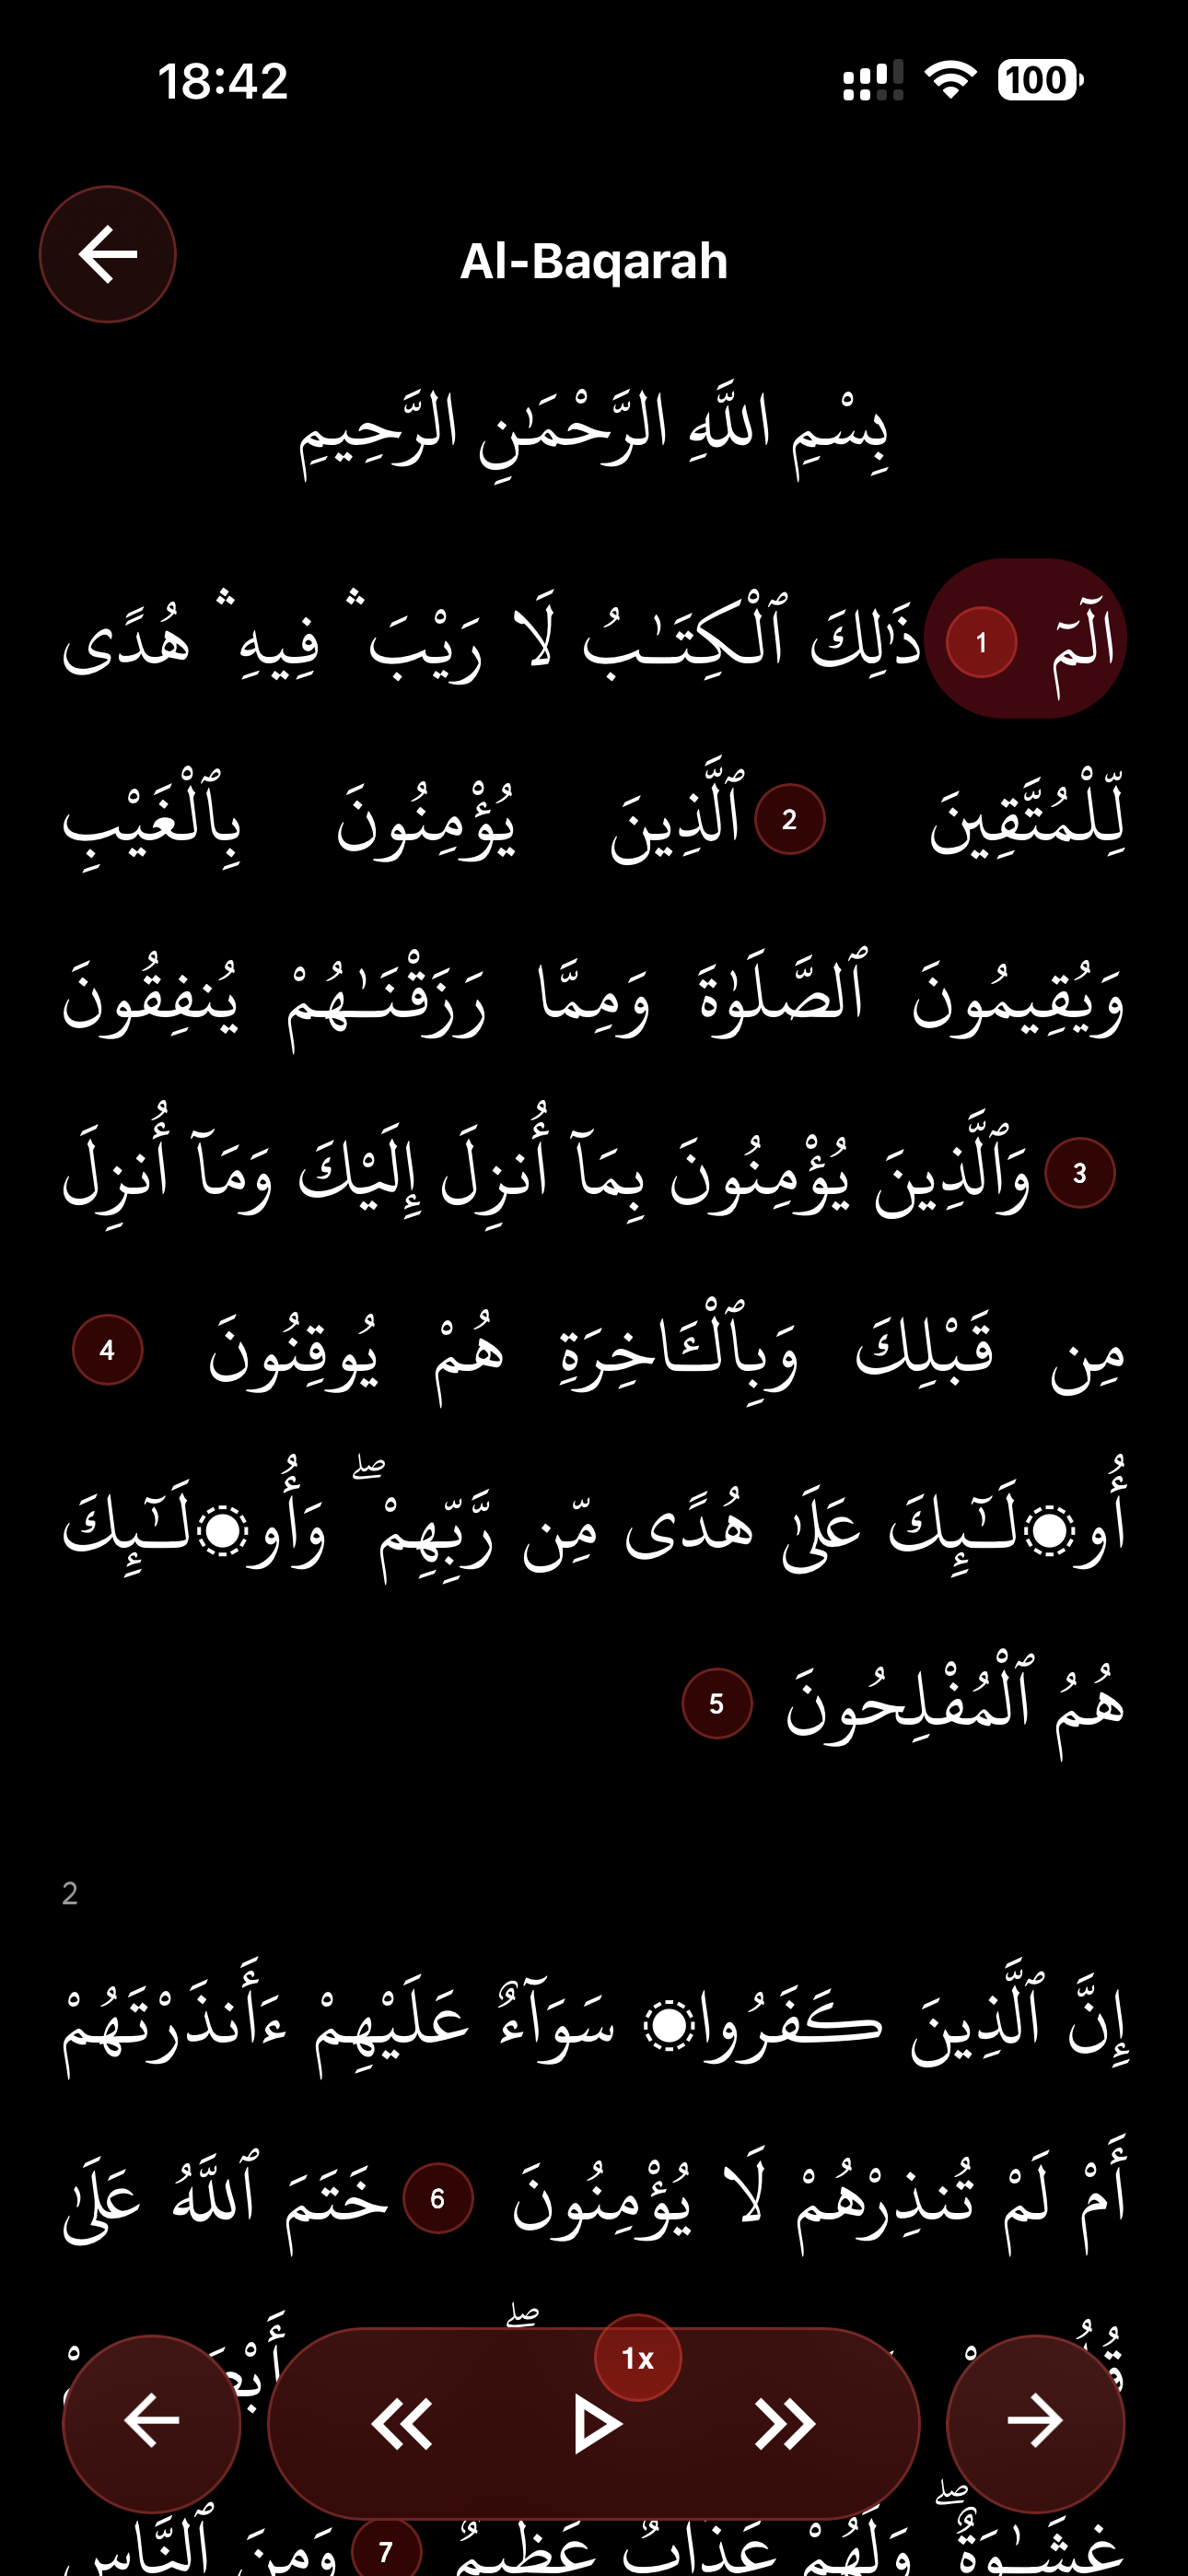 18:42
100
Al-Baqarah
بِسْمِ اللَّهِ الرَّحْمَٰنِ الرَّحِيمِ
الٓمٓ 1 ذَٰلِكَ ٱلْكِتَـٰبُ لَا رَيْبَ ۛ فِيهِ ۛ هُدًى
لِّلْمُتَّقِينَ 2 ٱلَّذِينَ يُؤْمِنُونَ بِٱلْغَيْبِ
وَيُقِيمُونَ ٱلصَّلَوٰةَ وَمِمَّا رَزَقْنَـٰهُمْ يُنفِقُونَ
3 وَٱلَّذِينَ يُؤْمِنُونَ بِمَآ أُنزِلَ إِلَيْكَ وَمَآ أُنزِلَ
مِن قَبْلِكَ وَبِٱلْـَٔاخِرَةِ هُمْ يُوقِنُونَ 4
أُو۟لَـٰٓئِكَ عَلَىٰ هُدًى مِّن رَّبِّهِمْ ۖ وَأُو۟لَـٰٓئِكَ
هُمُ ٱلْمُفْلِحُونَ 5
2
إِنَّ ٱلَّذِينَ كَفَرُوا۟ سَوَآءٌ عَلَيْهِمْ ءَأَنذَرْتَهُمْ
أَمْ لَمْ تُنذِرْهُمْ لَا يُؤْمِنُونَ 6 خَتَمَ ٱللَّهُ عَلَىٰ
1x
غِشَـٰوَةٌ ۖ وَلَهُمْ عَذَابٌ عَظِيمٌ 7 وَمِنَ ٱلنَّاسِ